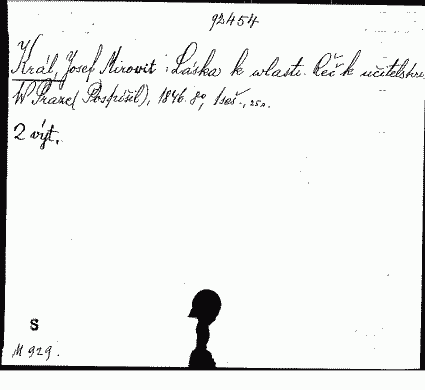 92454
Král, Josef Mirovit : Láska k vlasti. Řeč k učitelstvu
W Praze (Pospíšil), 1846. 8°, 1 seš.,
2 výt.
S
M 929.